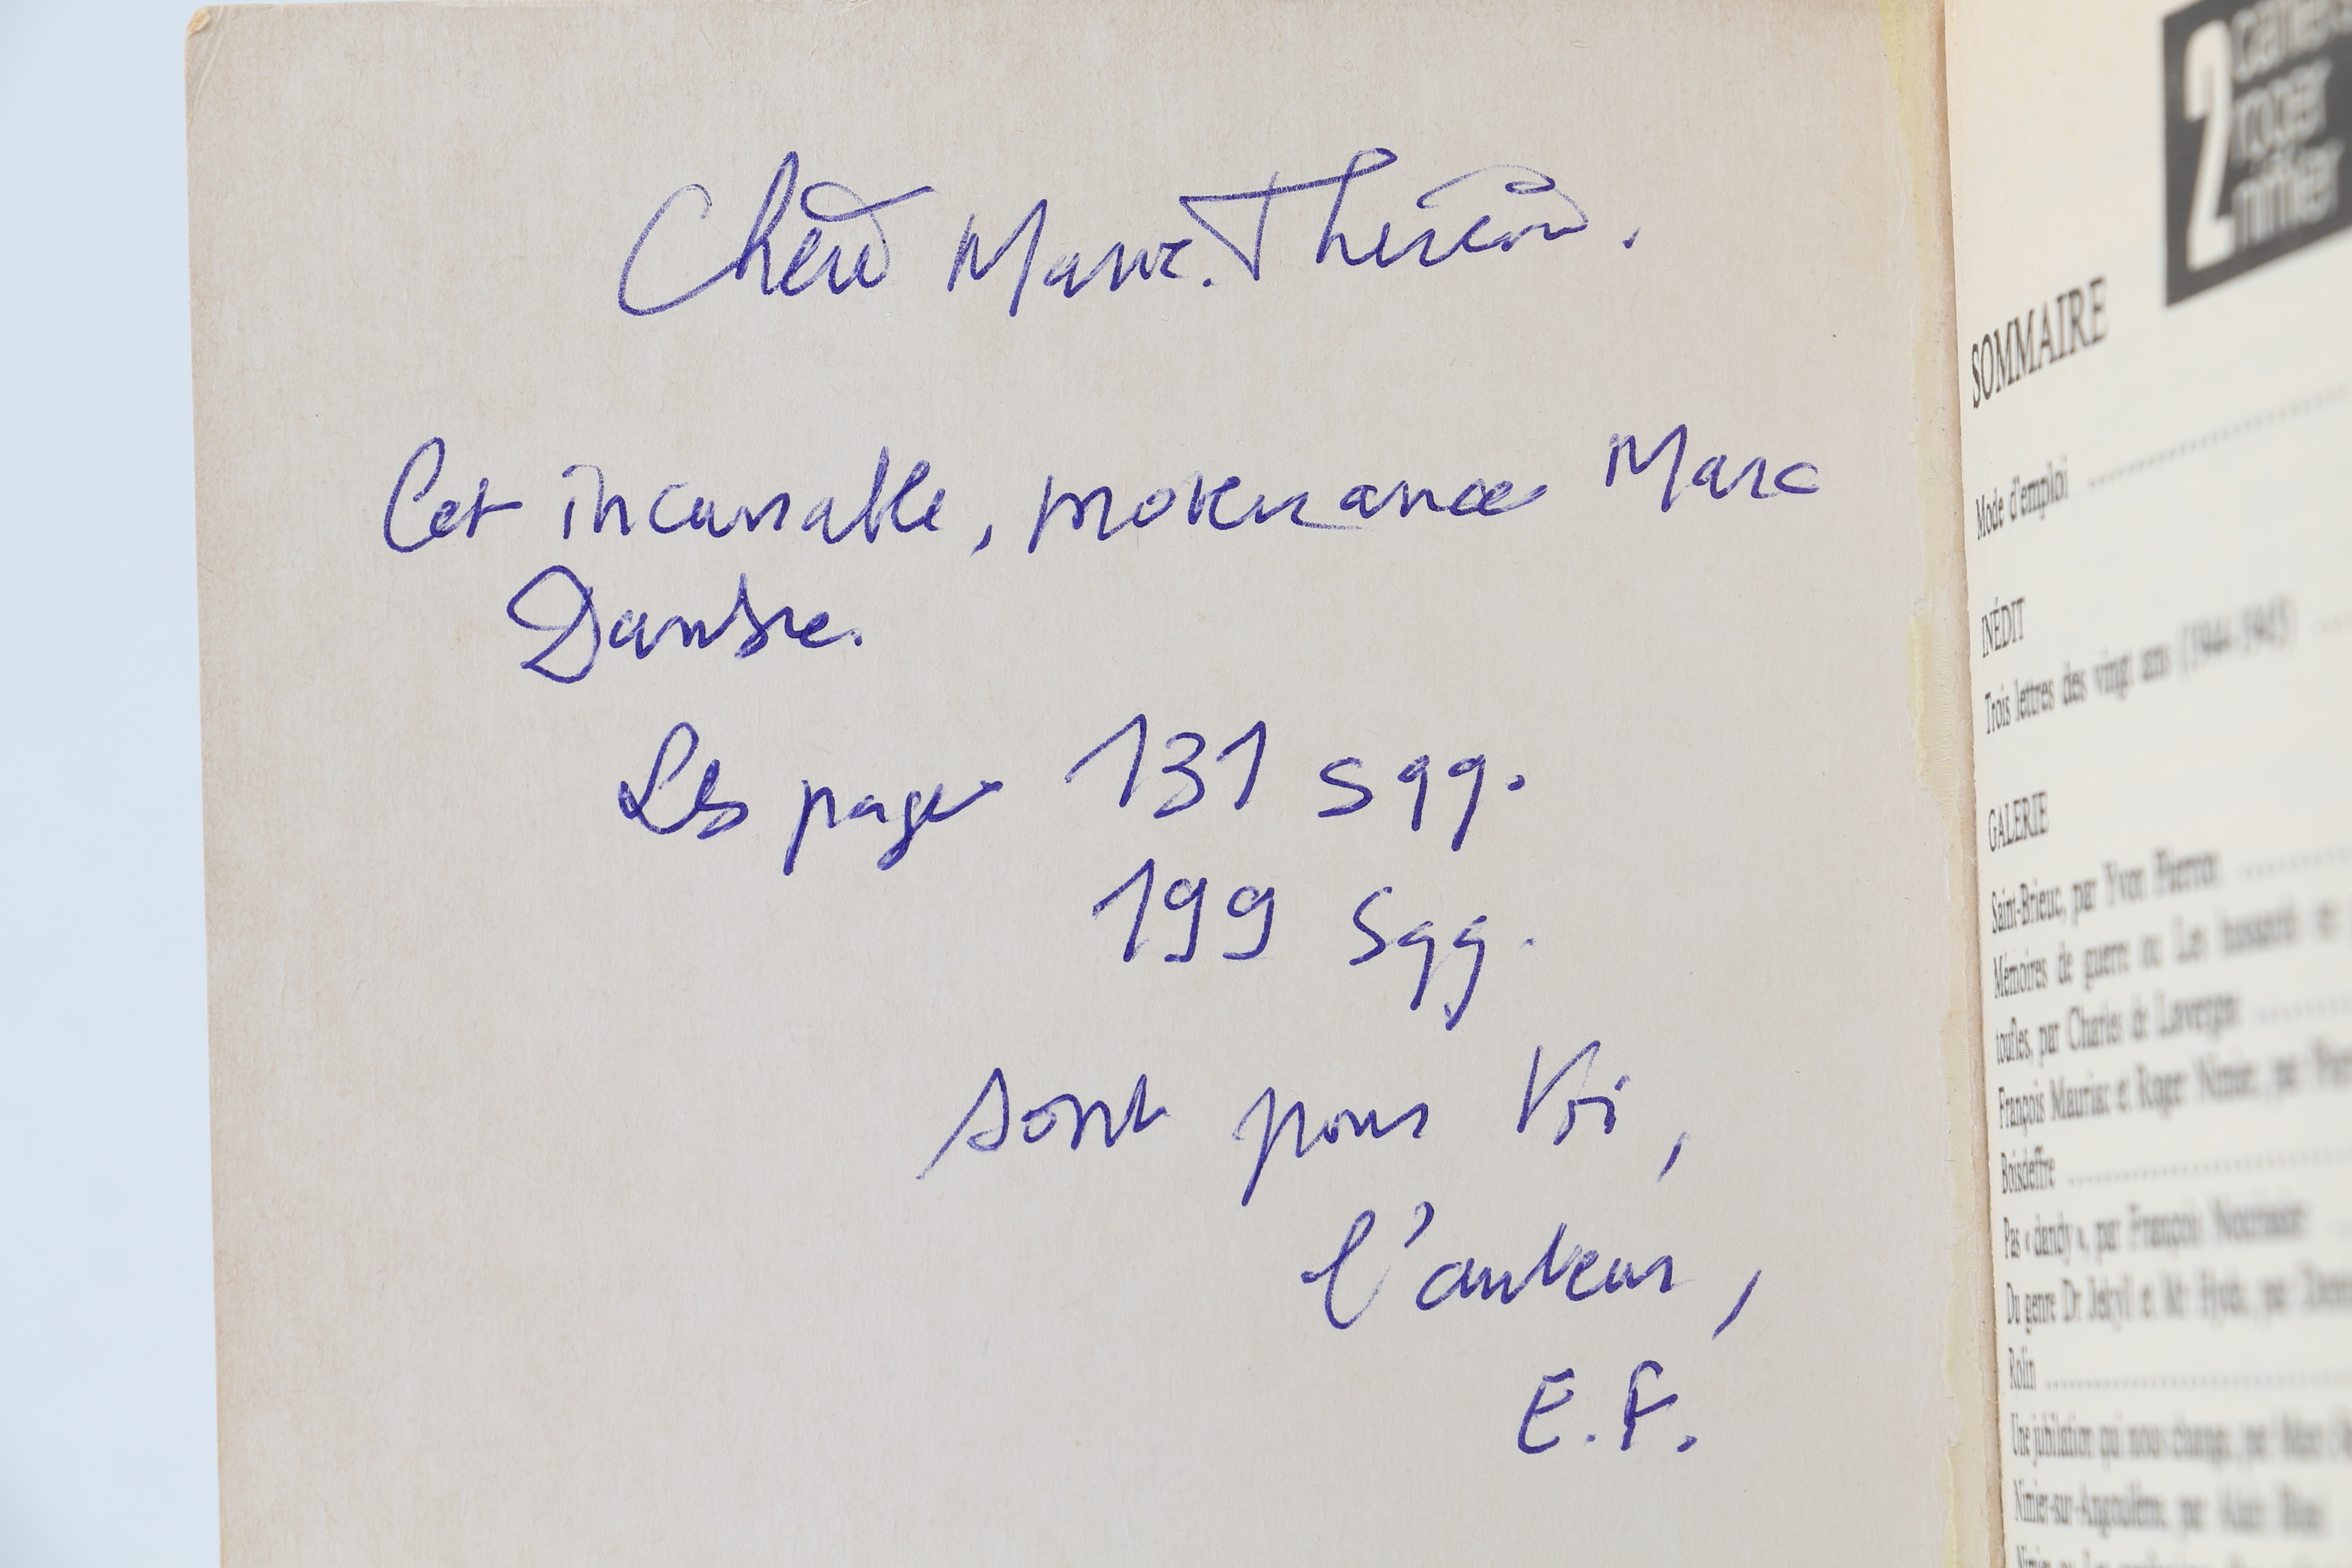 Chère Marie-Thérèse,
Cet incunable, provenance Marc
Dambre.
Les pages 131 sqq.
199 sqq.
sont pour Toi,
l'auteur,
E.F.
2
cahiers
roger
nimier
SOMMAIRE
Mode d'emploi
INÉDIT
Trois lettres des vingt ans (1944-1945)
GALERIE
Saint-Brieuc, par Yvon Pierron
Mémoires de guerre ou Les hussards en
toufles, par Charles de Lavergne
François Mauriac et Roger Nimier, par Pierre
Boisdeffre
Pas « dandy », par François Nourissier
Du genre Dr Jekyll et Mr Hyde, par
Rolin
Une jubilation qui nous change, par
Nimier-sur-Angoulême, par